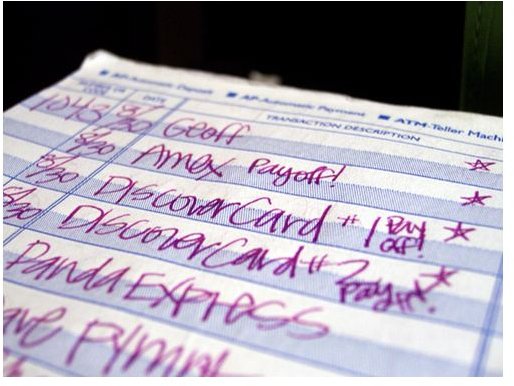 AP-Automatic Deposit AP-Automatic Payment ATM-Teller Mach
DATE TRANSACTION DESCRIPTION
1043 8/30 Geoff
8/30 Amex Payoff!
8/30 DiscoverCard #1 Pay off!
8/30 DiscoverCard #2 Payoff!
Panda EXPRESS
ave PYMNT